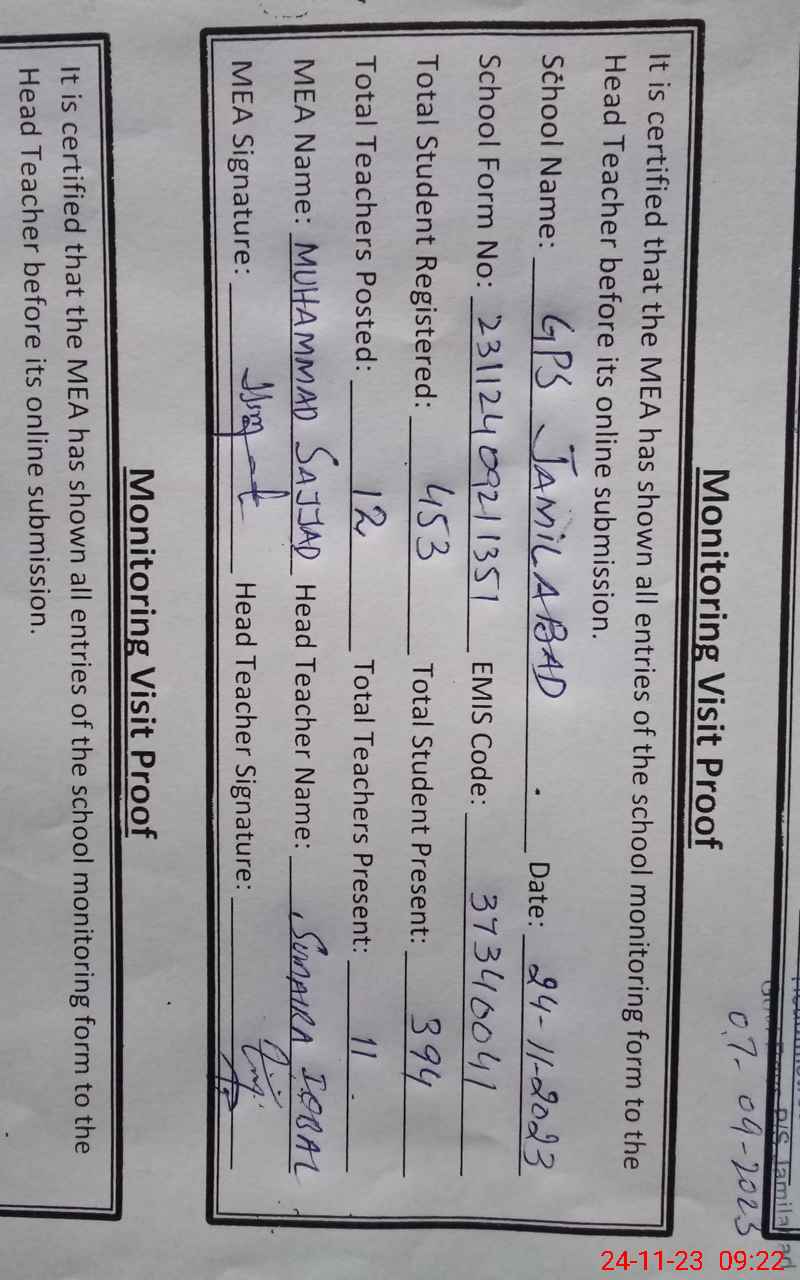 P/S Jamilabad
07-09-2023
Monitoring Visit Proof
It is certified that the MEA has shown all entries of the school monitoring form to the
Head Teacher before its online submission.
School Name: GPS JAMILABAD Date: 24-11-2023
School Form No: 23112409211351 EMIS Code: 37340041
Total Student Registered: 453 Total Student Present: 394
Total Teachers Posted: 12 Total Teachers Present: 11
MEA Name: MUHAMMAD SAJJAD Head Teacher Name: SUMAIRA IQBAL
MEA Signature: Head Teacher Signature:
Monitoring Visit Proof
It is certified that the MEA has shown all entries of the school monitoring form to the
Head Teacher before its online submission.
24-11-23 09:22